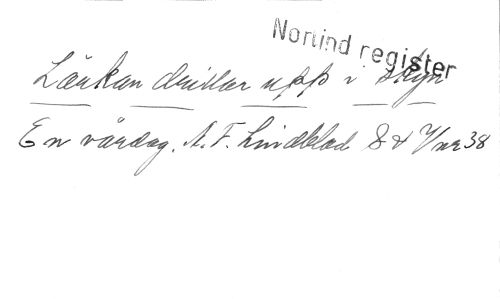 Norlind register
Lärkan drillar upp i skyn
En vårdag. A. F. Lindblad S & V nr 38